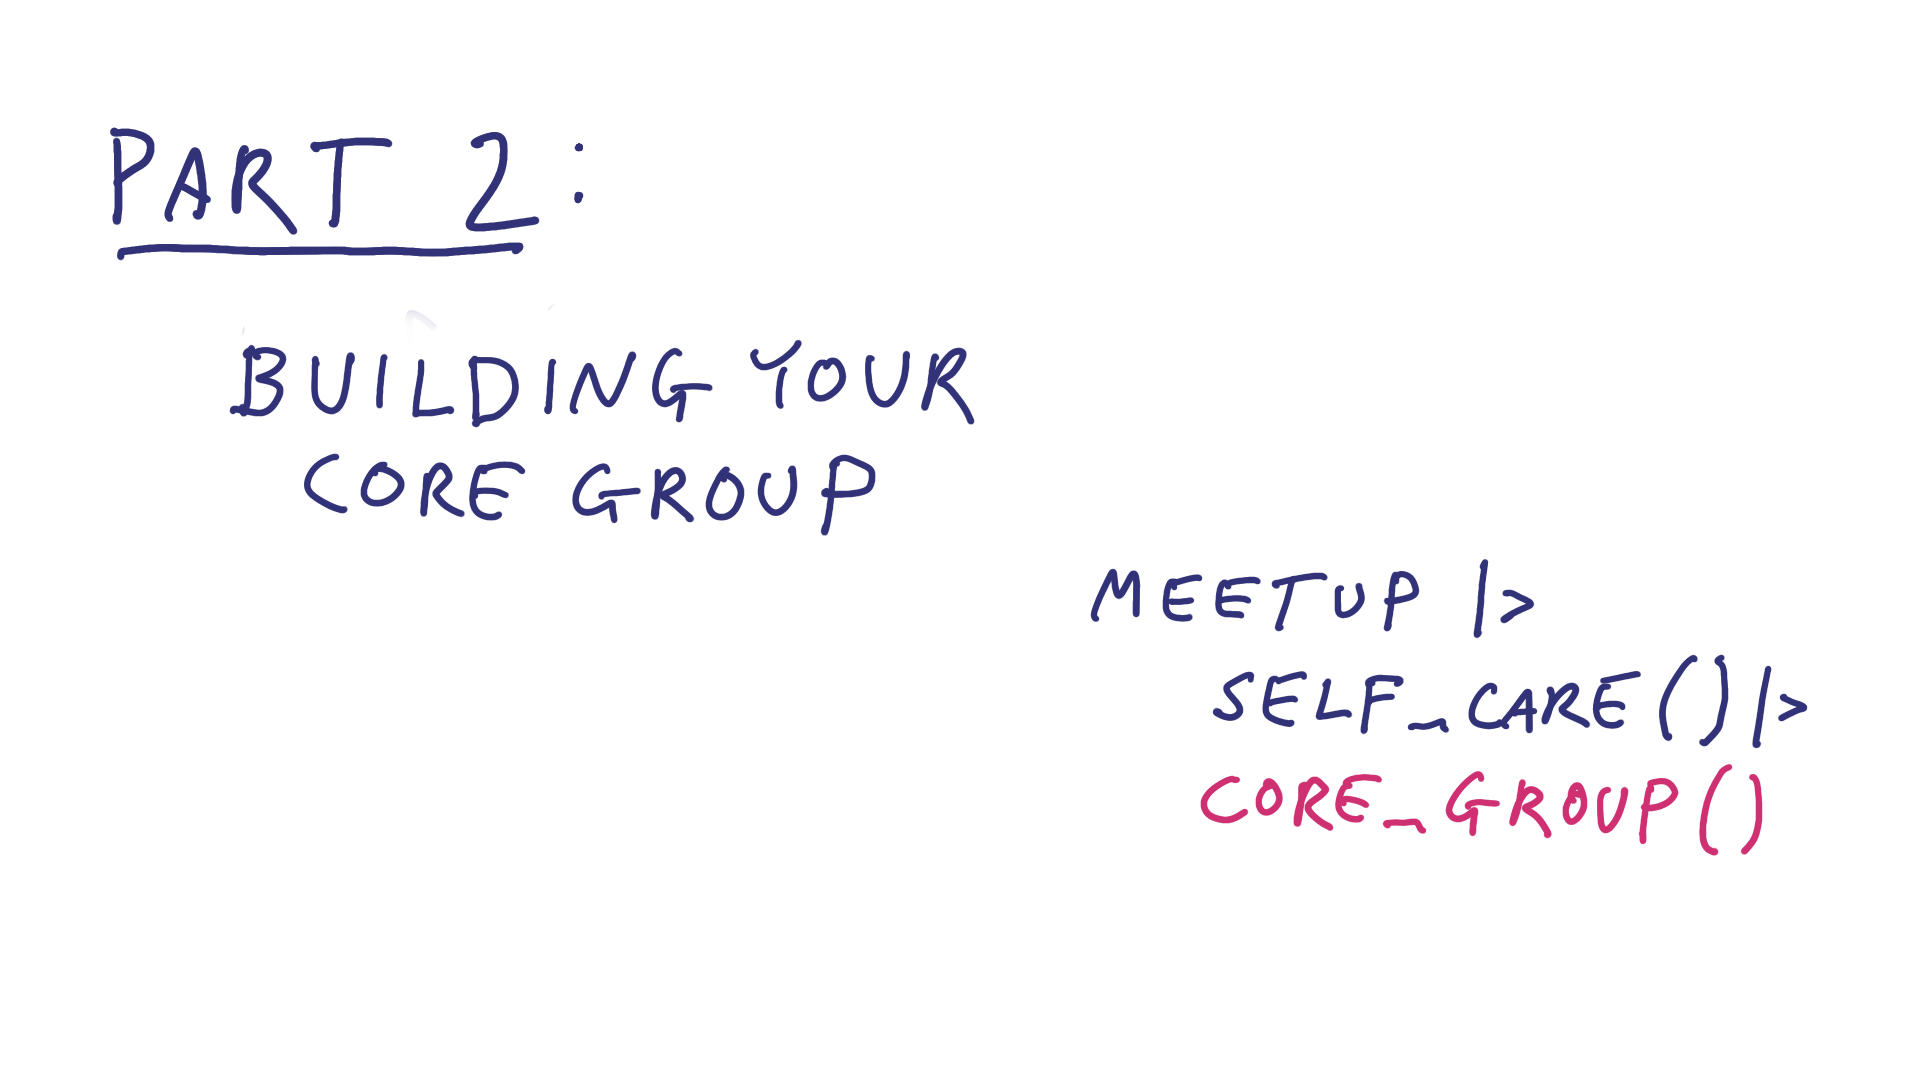 PART 2:
BUILDING YOUR
CORE GROUP
MEETUP |>
SELF_CARE() |>
CORE_GROUP()